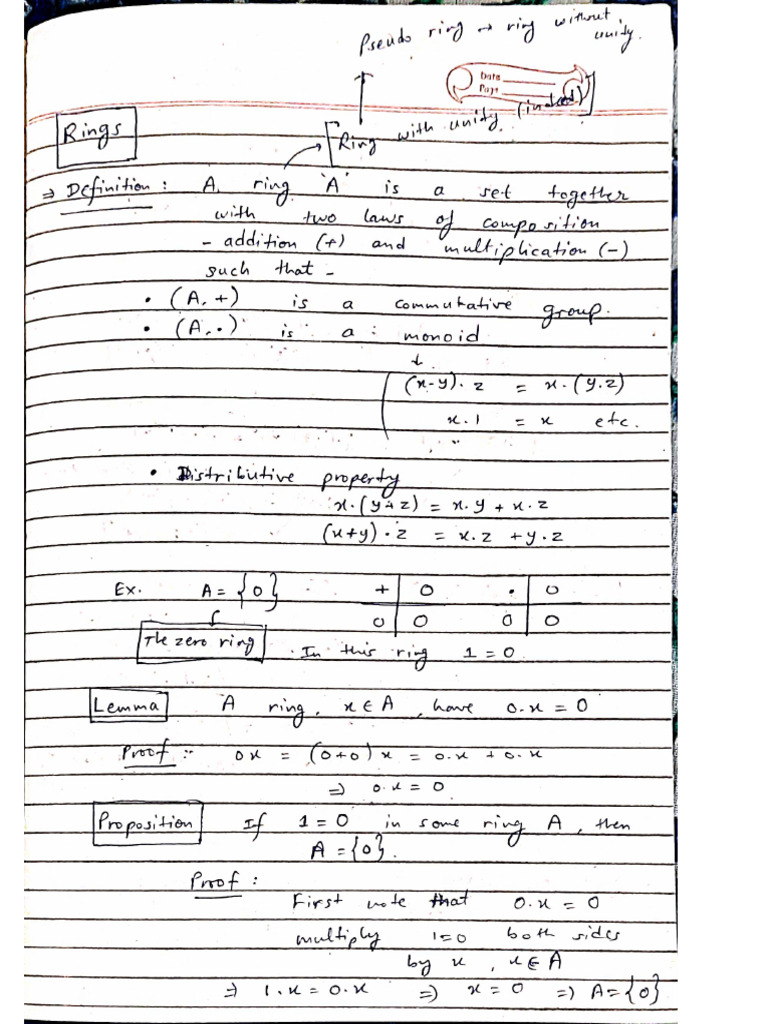 Pseudo ring → ring without unity.
Date
Page
Ring with unity (indeed)
Rings
⇒ Definition : A ring 'A' is a set together
with two laws of composition
- addition (+) and multiplication (-)
such that -
• (A, +) is a commutative group.
• (A, •) is a monoid
↓
(x-y). z = x. (y.z)
x. 1 = x etc.
• Distributive property
x.(y+z) = x.y + x.z
(x+y).z = x.z + y.z
Ex. A = {0} + | 0 • | 0
0 | 0 0 | 0
The zero ring . In this ring 1 = 0
Lemma A ring, x ∈ A, have 0.x = 0
Proof :- 0x = (0+0) x = 0.x + 0.x
⇒ 0.x = 0
Proposition If 1 = 0 in some ring A, then
A = {0}.
Proof :
First note that 0.x = 0
multiply 1=0 both sides
by x, x ∈ A
⇒ 1.x = 0.x ⇒ x = 0 ⇒ A = {0}